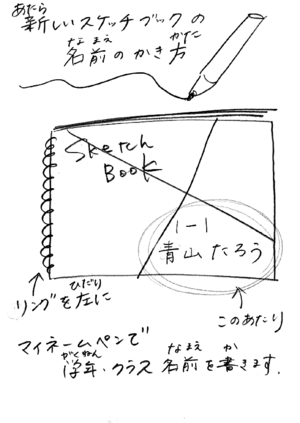 新しいスケッチブックの
あたら
名前のかき方
なまえ かた
Sketch
Book
1-1
青山たろう
リングを左に
ひだり
このあたり
マイネームペンで
学年・クラス 名前を書きます.
がくねん なまえ か